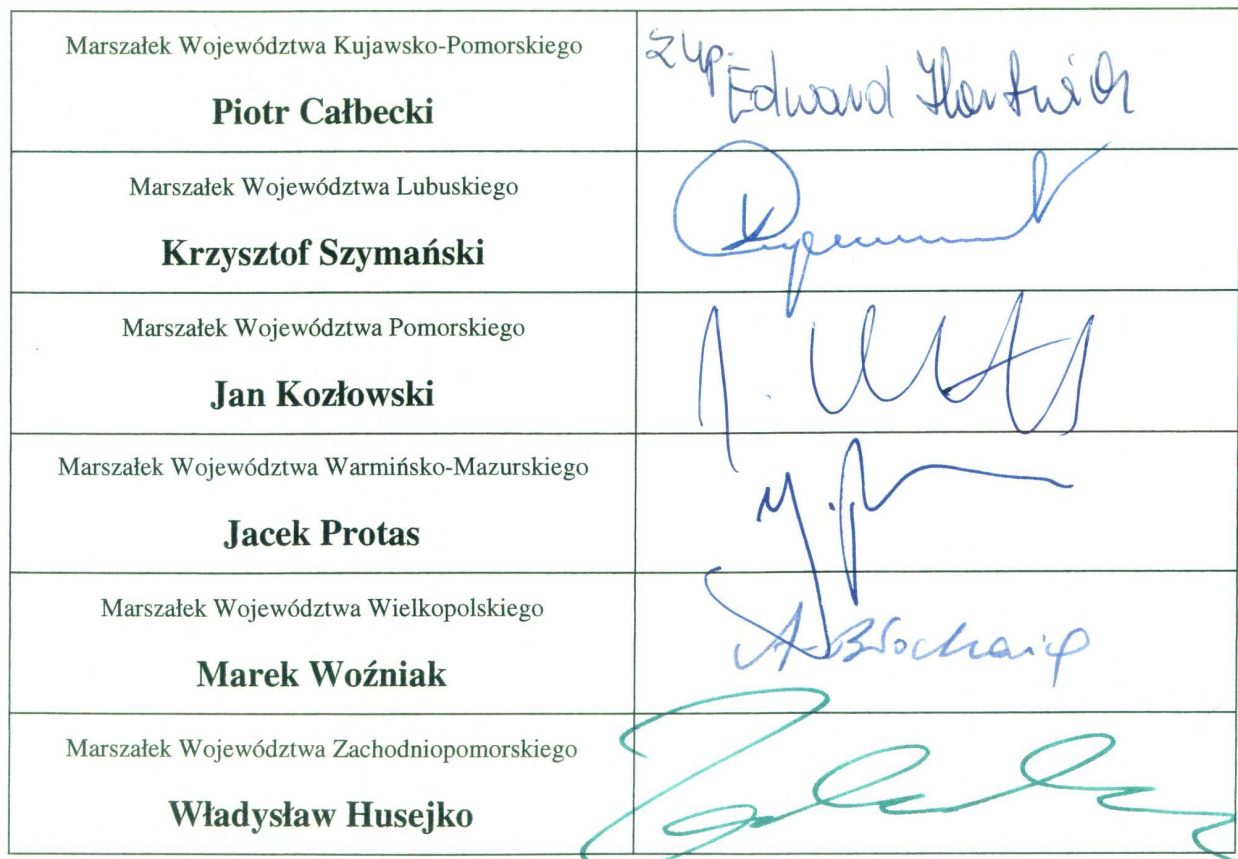 Marszałek Województwa Kujawsko-Pomorskiego
Piotr Całbecki
z up. Edward Hartwich
Marszałek Województwa Lubuskiego
Krzysztof Szymański
Marszałek Województwa Pomorskiego
Jan Kozłowski
Marszałek Województwa Warmińsko-Mazurskiego
Jacek Protas
Marszałek Województwa Wielkopolskiego
Marek Woźniak
Marszałek Województwa Zachodniopomorskiego
Władysław Husejko